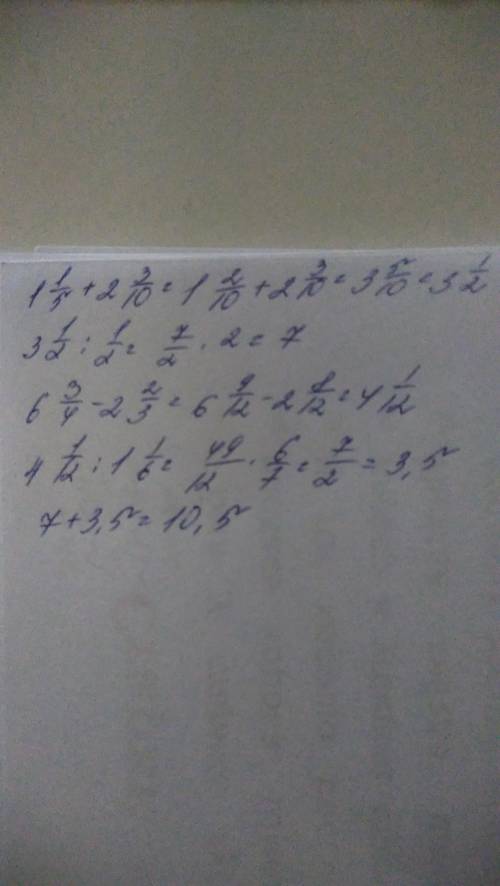 1 1/5 + 2 3/10 = 1 2/10 + 2 3/10 = 3 5/10 = 3 1/2
3 1/2 : 1/2 = 7/2 · 2 = 7
6 3/4 - 2 2/3 = 6 9/12 - 2 8/12 = 4 1/12
4 1/12 : 1 1/6 = 49/12 · 6/7 = 7/2 = 3,5
7 + 3,5 = 10,5